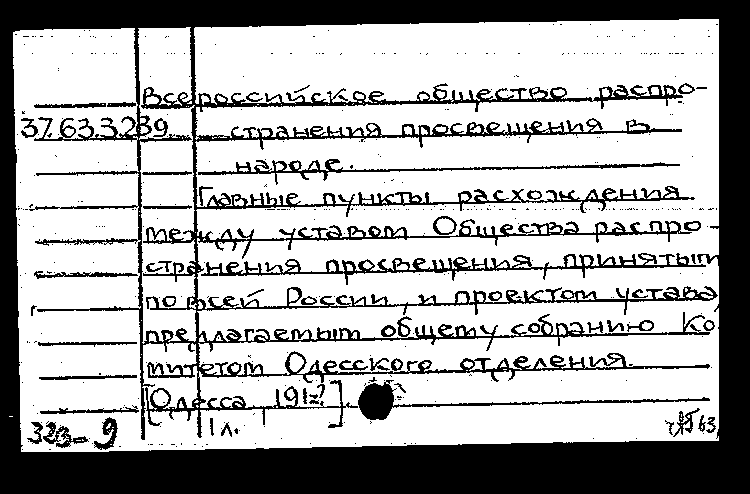 Всероссийское общество распро-
37.63.3.239 странения просвещения в
народе.
Главные пункты расхождения
между уставом Общества распро-
странения просвещения, принятым
по всей России, и проектом устава
предлагаемым общему собранию Ко
митетом Одесского отделения.
[Одесса, 191-?]
1 л.
323-9